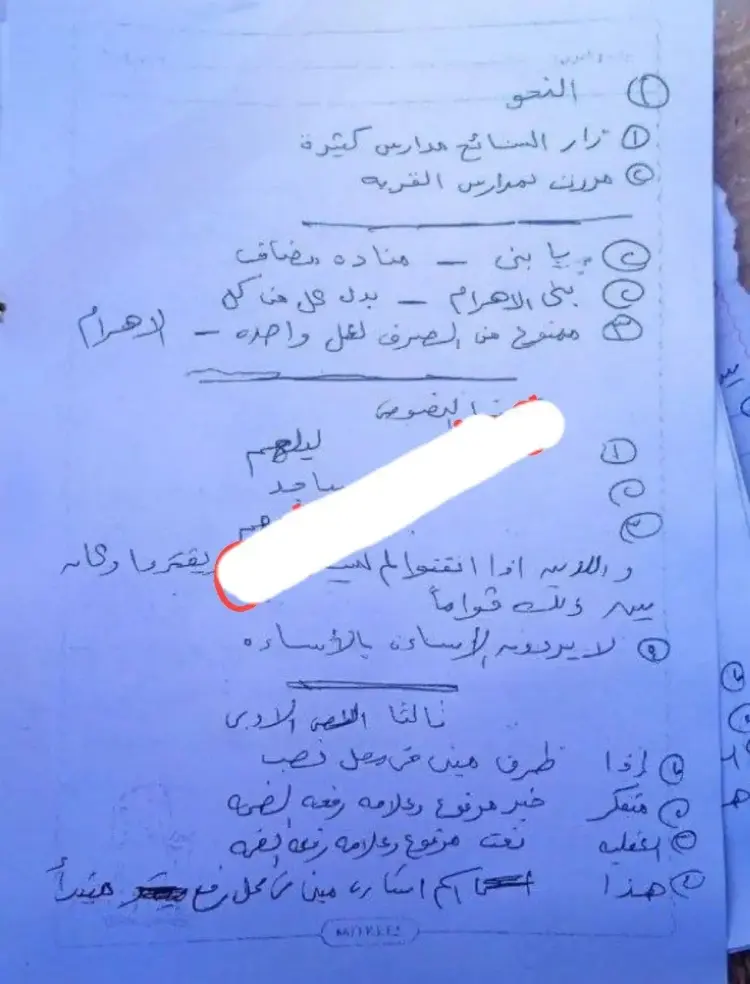 ٢ النحو
١ زار السائح مدارس كثيرة
٢ مررت بمدارس القريه
٢ يا بنى — مناده مضاف
٢ بنى الاهرام — بدل كل من كل
٣ ممنوع من الصرف لعل واحده — الاهرام
النصوص
١ ليلهم
٢
٣
واللذين اذا انفقوا لم يقتروا وكان
بين ذلك قواماً
٩ لا يردون الإساءه بالأساءه
ثالثا النص الادبى
إذا ظرف مبنى فى محل نصب
٢ متفكر خبر مرفوع وعلامه رفعه الضمه
٣ العقليه نعت مرفوع وعلامه رفعه الضمه
هذا اسم اشاره مبنى فى محل رفع مبتدأ